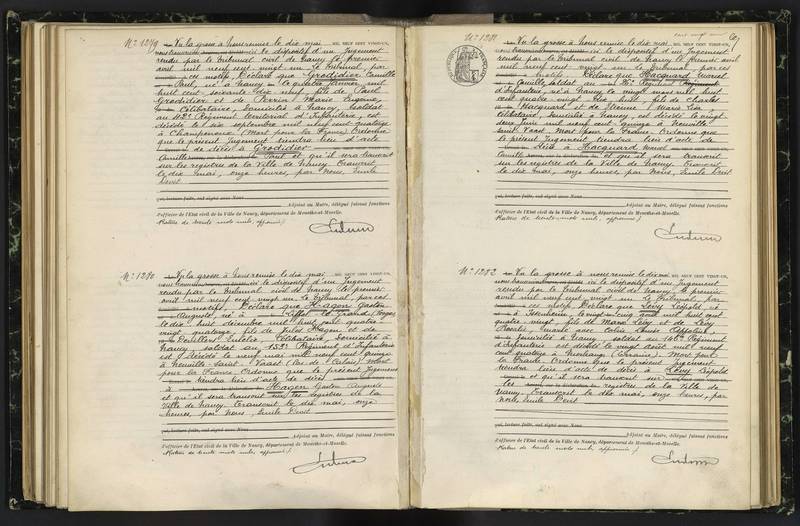 N° 1279 Vu la grosse à nous remise le dix mai MIL NEUF CENT VINGT-UN,
le dispositif d'un Jugement
rendu par le Tribunal civil de Nancy le premier
avril mil neuf cent vingt un Le Tribunal, par
ces motifs, Déclare que Grodidier Camille
Paul, né à Nancy le quatre Janvier mil
huit cent soixante dix neuf, fils de Paul
Grodidier et de Perrin Marie Eugénie,
Célibataire, domicilié à Nancy, soldat
au 42e Régiment territorial d'Infanterie, est
décédé le dix septembre mil neuf cent quatorze
à Champenoux (Mort pour la France) Ordonne
que le présent Jugement tiendra lieu d'acte
de décès à Grodidier
Camille Paul et qu'il sera transcrit
sur les registres de la Ville de Nancy. Transcrit
le dix mai, onze heures, par Nous, Emile
Devit
qui, lecture faite, ont signé avec Nous
Adjoint au Maire, délégué faisant fonctions
d'officier de l'Etat civil de la Ville de Nancy, département de Meurthe-et-Moselle.
(Rature de trente mots nuls, approuvé)
N° 1280 Vu la grosse à nous remise le dix mai MIL NEUF CENT VINGT-UN,
le dispositif d'un Jugement
rendu par le Tribunal civil de Nancy le premier
avril mil neuf cent vingt un Le Tribunal, par ces
motifs, Déclare que Hagen Gaston
Auguste, né à Liffol le Grand (Vosges)
le dix huit décembre mil huit cent quatre-
vingt quatorze, fils de Jules Hagen et de
Eulalie, Célibataire, domicilié à
Nancy, soldat au 153e Régiment d'Infanterie
est décédé le neuf mai mil neuf cent quinze
à Neuville Saint Vaast (Pas de Calais) Mort
pour la France Ordonne que le présent Jugement
tiendra lieu d'acte de décès
à Hagen Gaston Auguste
et qu'il sera transcrit sur les registres de la
Ville de Nancy. Transcrit le dix mai, onze
heures, par Nous, Emile Devit
qui, lecture faite, ont signé avec Nous
Adjoint au Maire, délégué faisant fonctions
d'officier de l'Etat civil de la Ville de Nancy, département de Meurthe-et-Moselle.
(Rature de trente mots nuls, approuvé)
N° 1281 Vu la grosse à nous remise le dix mai MIL NEUF CENT VINGT-UN,
le dispositif d'un Jugement
rendu par le Tribunal civil de Nancy le premier avril
mil neuf cent vingt un Le Tribunal par ces
motifs Déclare que Hacquard Marcel
Camille soldat au Régiment
d'Infanterie, né à Nancy le vingt mars mil huit
cent quatre vingt dix huit, fils de Charles
Hacquard et de Marie
célibataire, domicilié à Nancy, est décédé le vingt
deux Juin mil neuf cent quinze à Neuville
Saint Vaast, Mort pour la France Ordonne que
le présent Jugement tiendra lieu d'acte de
décès à Hacquard Marcel
Camille et qu'il sera transcrit
sur les registres de la Ville de Nancy. Transcrit
le dix mai, onze heures, par Nous, Emile Devit
qui, lecture faite, ont signé avec Nous
Adjoint au Maire, délégué faisant fonctions
d'officier de l'Etat civil de la Ville de Nancy, département de Meurthe-et-Moselle.
(Rature de trente mots nuls, approuvé)
N° 1282 Vu la grosse à nous remise le dix mai MIL NEUF CENT VINGT-UN,
le dispositif d'un Jugement
rendu par le Tribunal civil de Nancy le premier
avril mil neuf cent vingt un Le Tribunal par
ces motifs Déclare que Lévy Léopold
né à Issenheim, le vingt août mil huit cent
quatre vingt, fils de Marx Lévy et de Lévy
Rosalie, marié avec
domicilié à Nancy, soldat au 146e Régiment
d'Infanterie est décédé le vingt août mil neuf
cent quatorze à Morhange (Lorraine) Mort pour
la France Ordonne que le présent Jugement
tiendra lieu d'acte de décès à Lévy Léopold
et qu'il sera transcrit sur
les registres de la Ville de
Nancy. Transcrit le dix mai, onze heures, par
Nous, Emile Devit
qui, lecture faite, ont signé avec Nous
Adjoint au Maire, délégué faisant fonctions
d'officier de l'Etat civil de la Ville de Nancy, département de Meurthe-et-Moselle.
(Rature de trente mots nuls, approuvé)